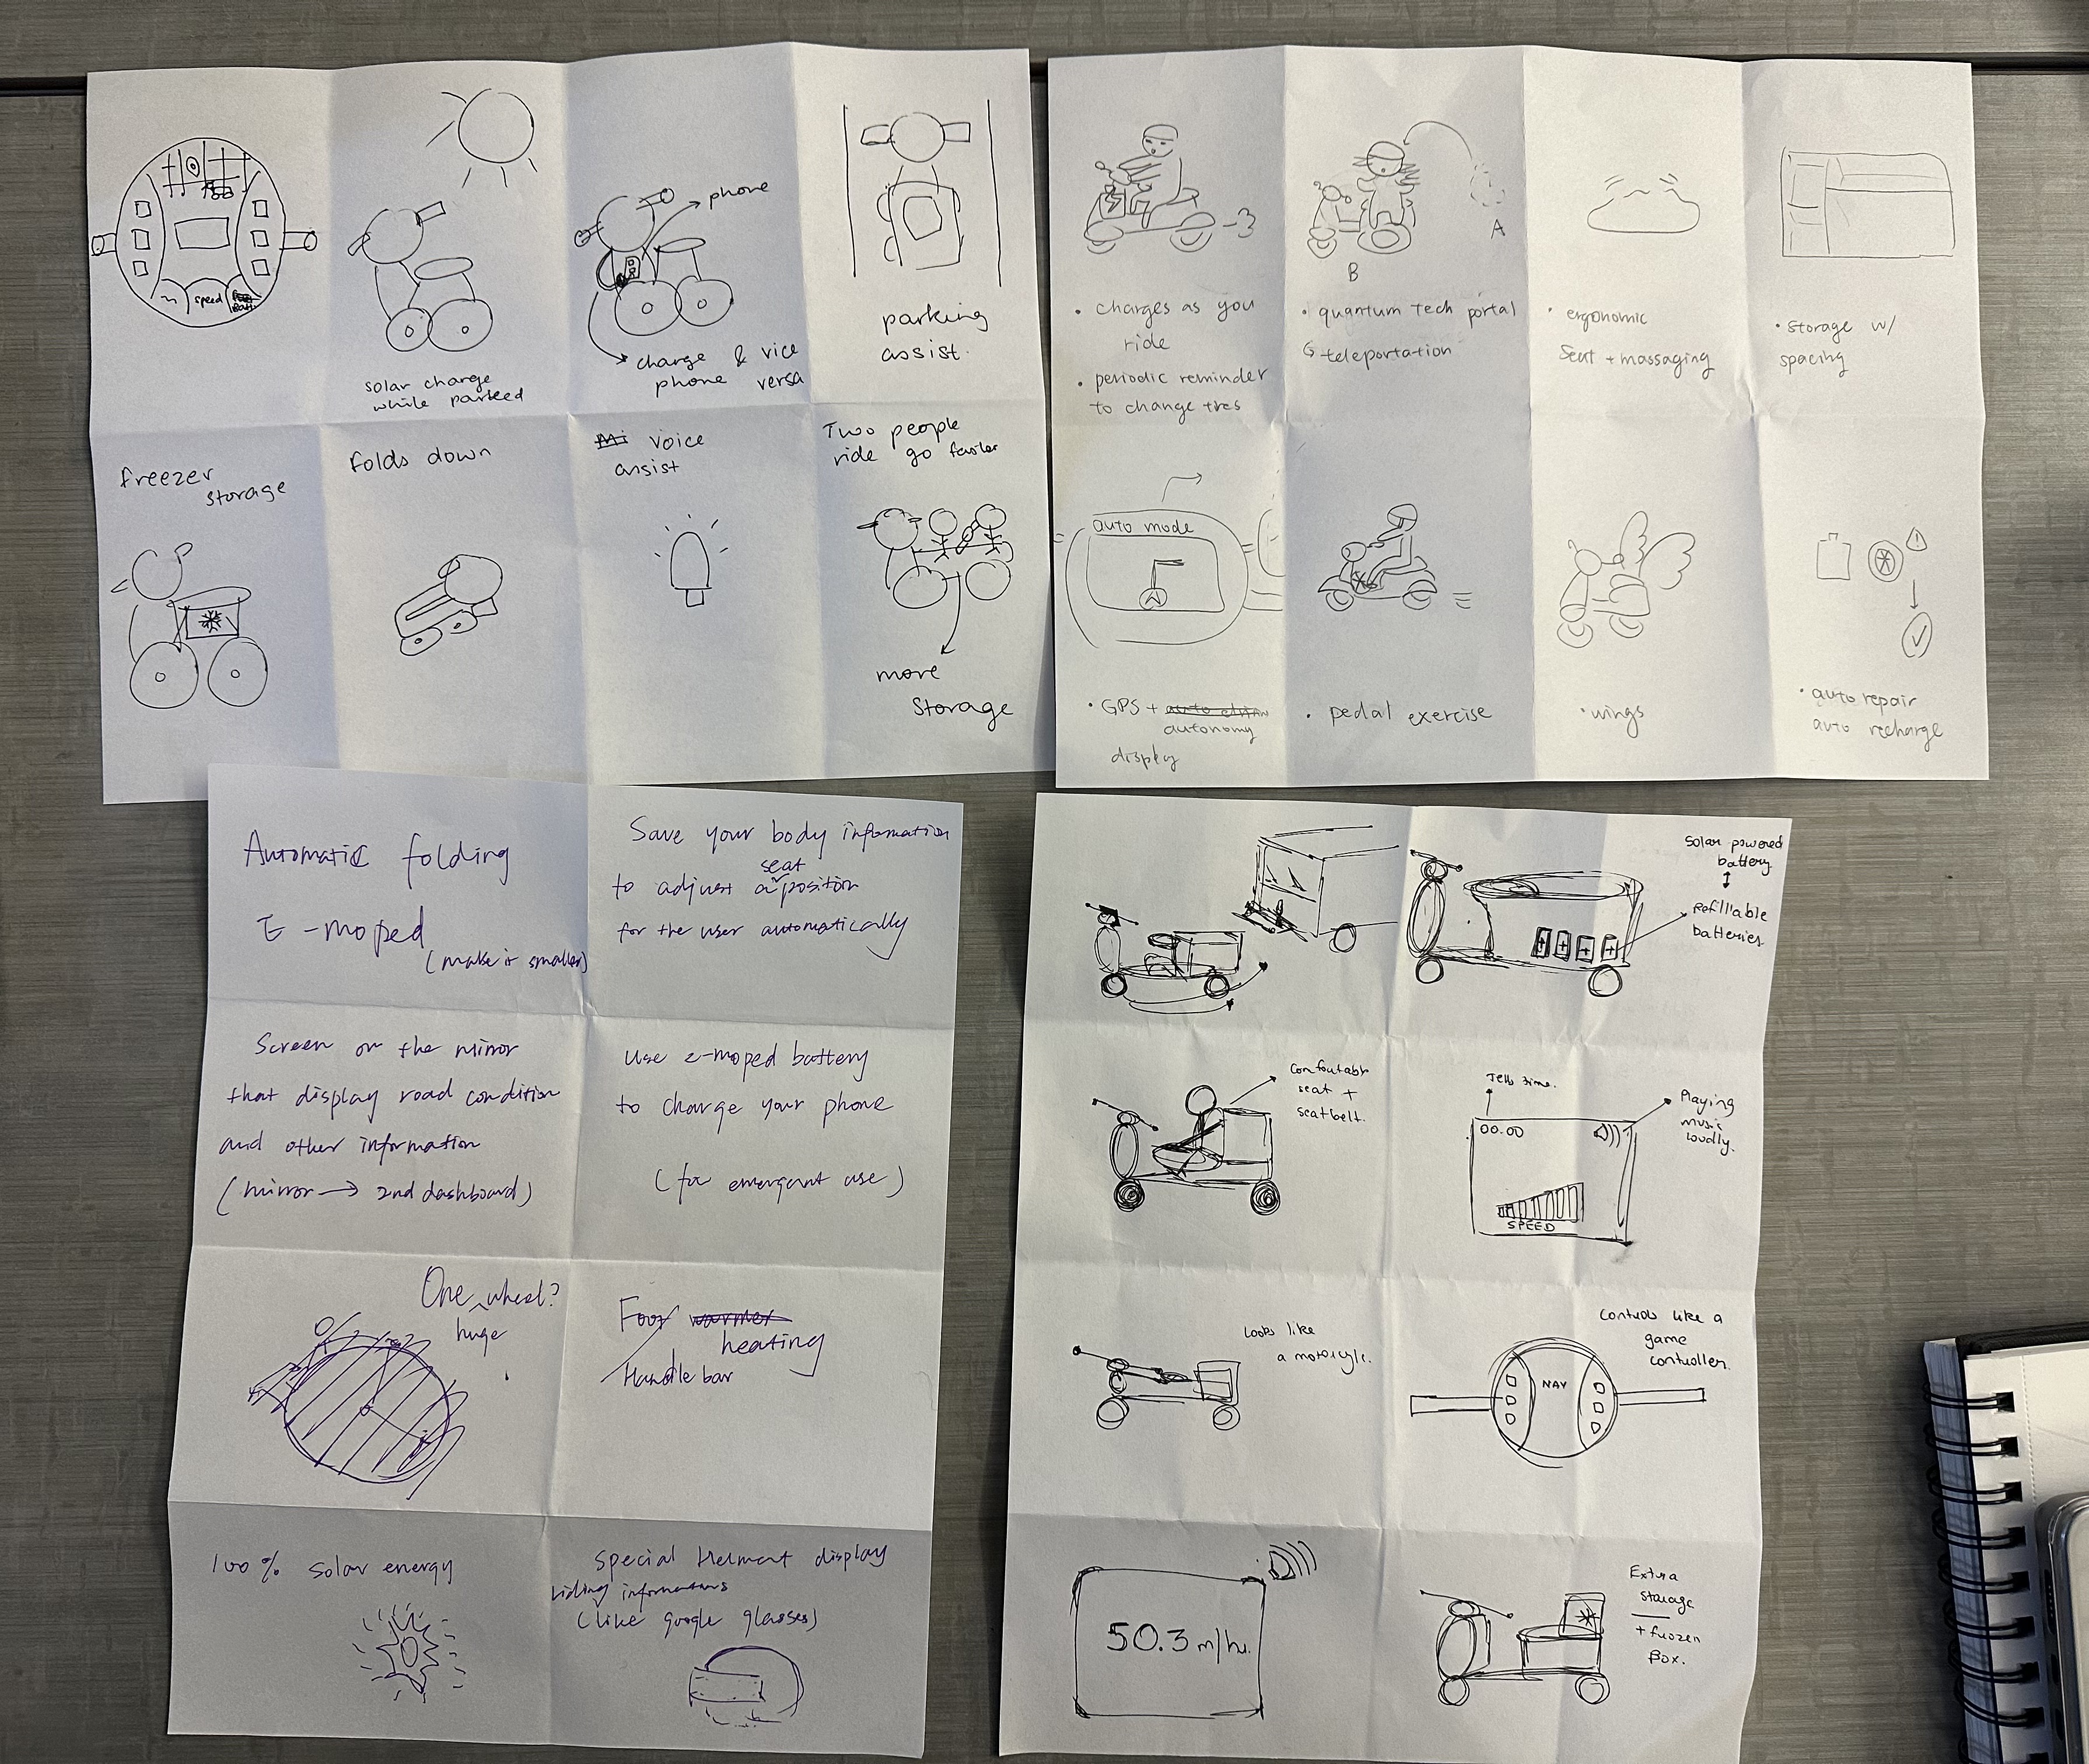 speed
solar charge
while parked
phone
charge & vice
phone versa
parking
assist.
freezer
storage
folds down
voice
assist
Two people
ride go faster
more
storage
• charges as you
ride
• periodic reminder
to change tires
A
B
• quantum tech portal
teleportation
• ergonomic
seat + massaging
• storage w/
spacing
auto mode
• GPS +
autonomy
display
• pedal exercise
• wings
• auto repair
auto recharge
Automatic folding
E-moped
(make it smaller)
Save your body information
seat
to adjust a position
for the user automatically
Screen on the mirror
that display road condition
and other information
(mirror → 2nd dashboard)
Use e-moped battery
to charge your phone
(for emergent use)
One wheel?
huge
heating
Handle bar
100% solar energy
Special Helment display
riding informations
(like google glasses)
Solar powered
battery
Refillable
batteries
Comfoutabl
seat +
seatbelt.
Tells time.
00.00
Playing
music
loudly.
SPEED
Looks like
a motorcycle.
Controls like a
game
controller.
NAV
50.3 m/hr.
Extra
storage
+ frozen
Box.